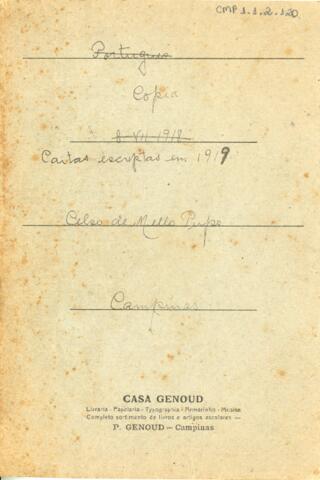 CMP 1.1.2.120
Portuguez
Copia
8-VII-1918
Cartas escriptas em 1919
Celso de Mello Pupo
Campinas
CASA GENOUD
Livraria - Papelaria - Typographia - Armarinho - Musica
Completo sortimento de livros e artigos escolares —
P. GENOUD — Campinas